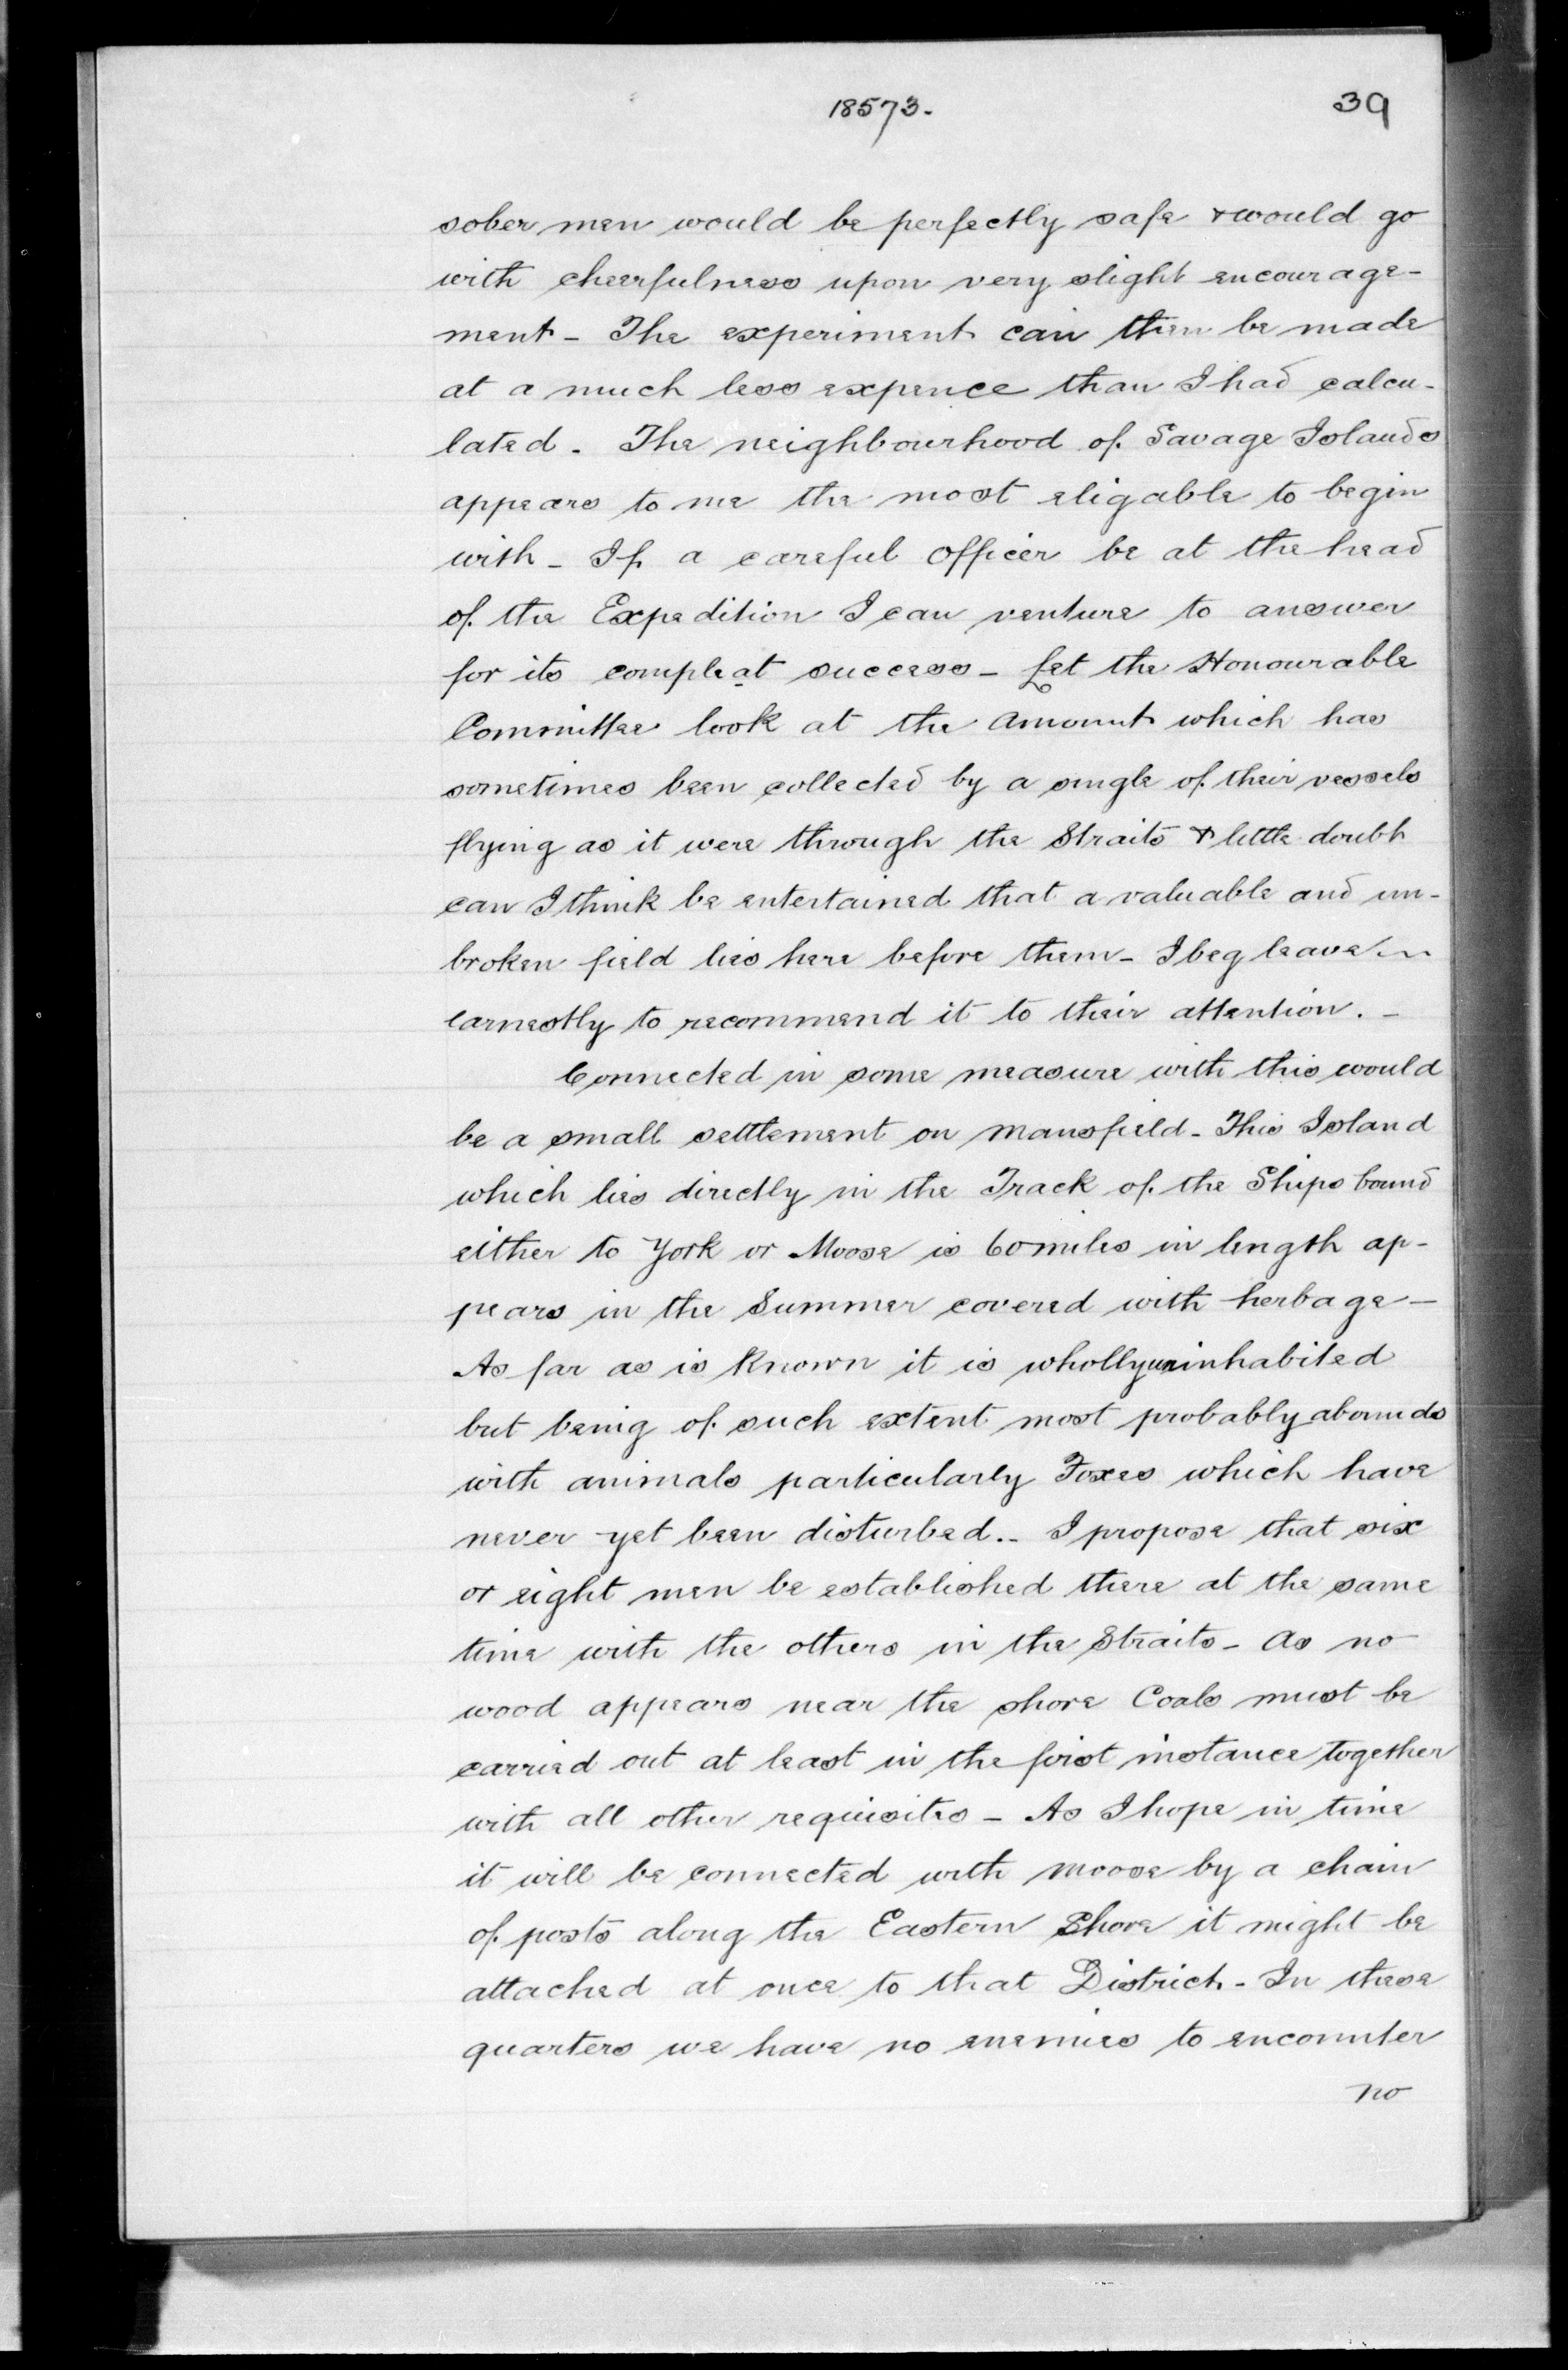 18573.
39
sober men would be perfectly safe & would go
with cheerfulness upon very slight encourage-
ment - The experiment can then be made
at a much less expence than I had calcu-
lated. The neighbourhood of Savage Islands
appears to me the most eligable to begin
with - If a careful officer be at the head
of the Expedition I can venture to answer
for its compleat success - Let the Honourable
Committee look at the Amount which has
sometimes been collected by a single of their vessels
flying as it were through the Straits & little doubt
can I think be entertained that a valuable and un-
broken field lies here before them - I beg leave
earnestly to recommend it to their attention. -
Connected in some measure with this would
be a small settlement on Mansfield - This Island
which lies directly in the Track of the Ships bound
either to York or Moose is 60 miles in length ap-
pears in the Summer covered with herbage -
As far as is known it is wholly uninhabited
but being of such extent most probably abounds
with animals particularly Foxes which have
never yet been disturbed. - I propose that six
or eight men be established there at the same
time with the others in the Straits - As no
wood appears near the shore Coals must be
carried out at least in the first instance together
with all other requisites - As I hope in time
it will be connected with Moose by a chain
of posts along the Eastern Shore it might be
attached at once to that District - In these
quarters we have no enemies to encounter
no